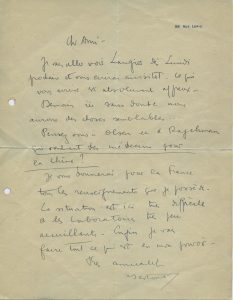 Cher Ami -
Je vais aller voir Langres Lundi
prochain et vous aurai aussitôt. Ce qui
vous arrive est absolument affreux.
Demain ici sans doute nous
aurons des choses semblables.
Pensez-vous - Olsen et à Rajchman
qui veulent des médecins pour
la Chine ?
Je vous donnerai pour la France
tous les renseignements que je possède.
La situation est ici très difficile
et les laboratoires très peu
accueillants. Enfin je vais
faire tout ce qui est en mon pouvoir.
Très amicalement